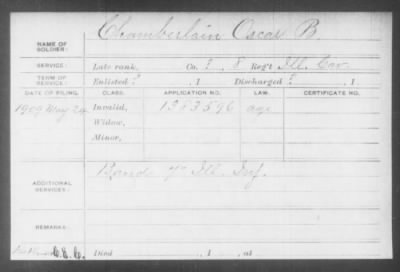 Chamberlain Oscar B.
NAME OF SOLDIER:
SERVICE: Late rank, Co. ?, 8 Reg't Ill. Cav.
TERM OF SERVICE: Enlisted ?, 1 Discharged ?, 1
DATE OF FILING. CLASS. APPLICATION NO. CERTIFICATE NO.
1909 May 24 Invalid, 1383596 age
Widow,
Minor,
ADDITIONAL SERVICES: Band 7" Ill. Inf.
REMARKS:
C. & C. Died , 1 , at